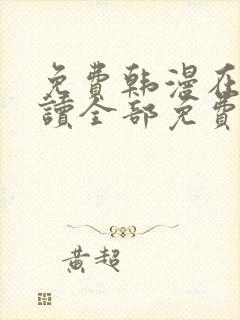 免费韩漫在
讀全部免費
黄超